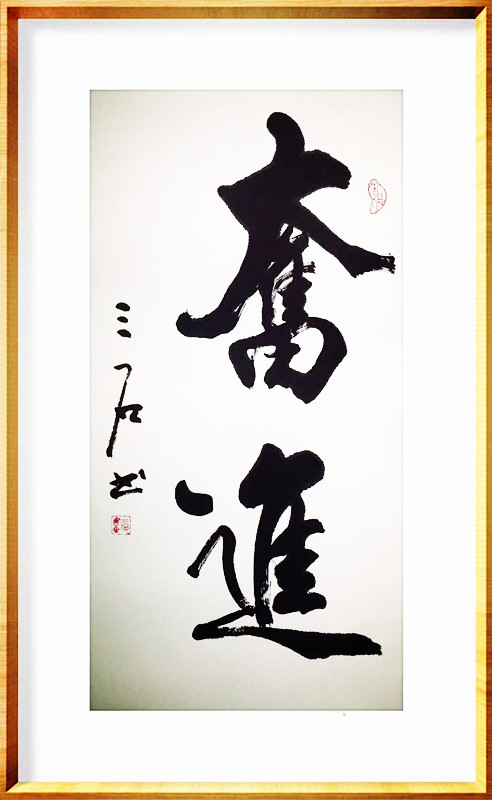 奮進
三石书